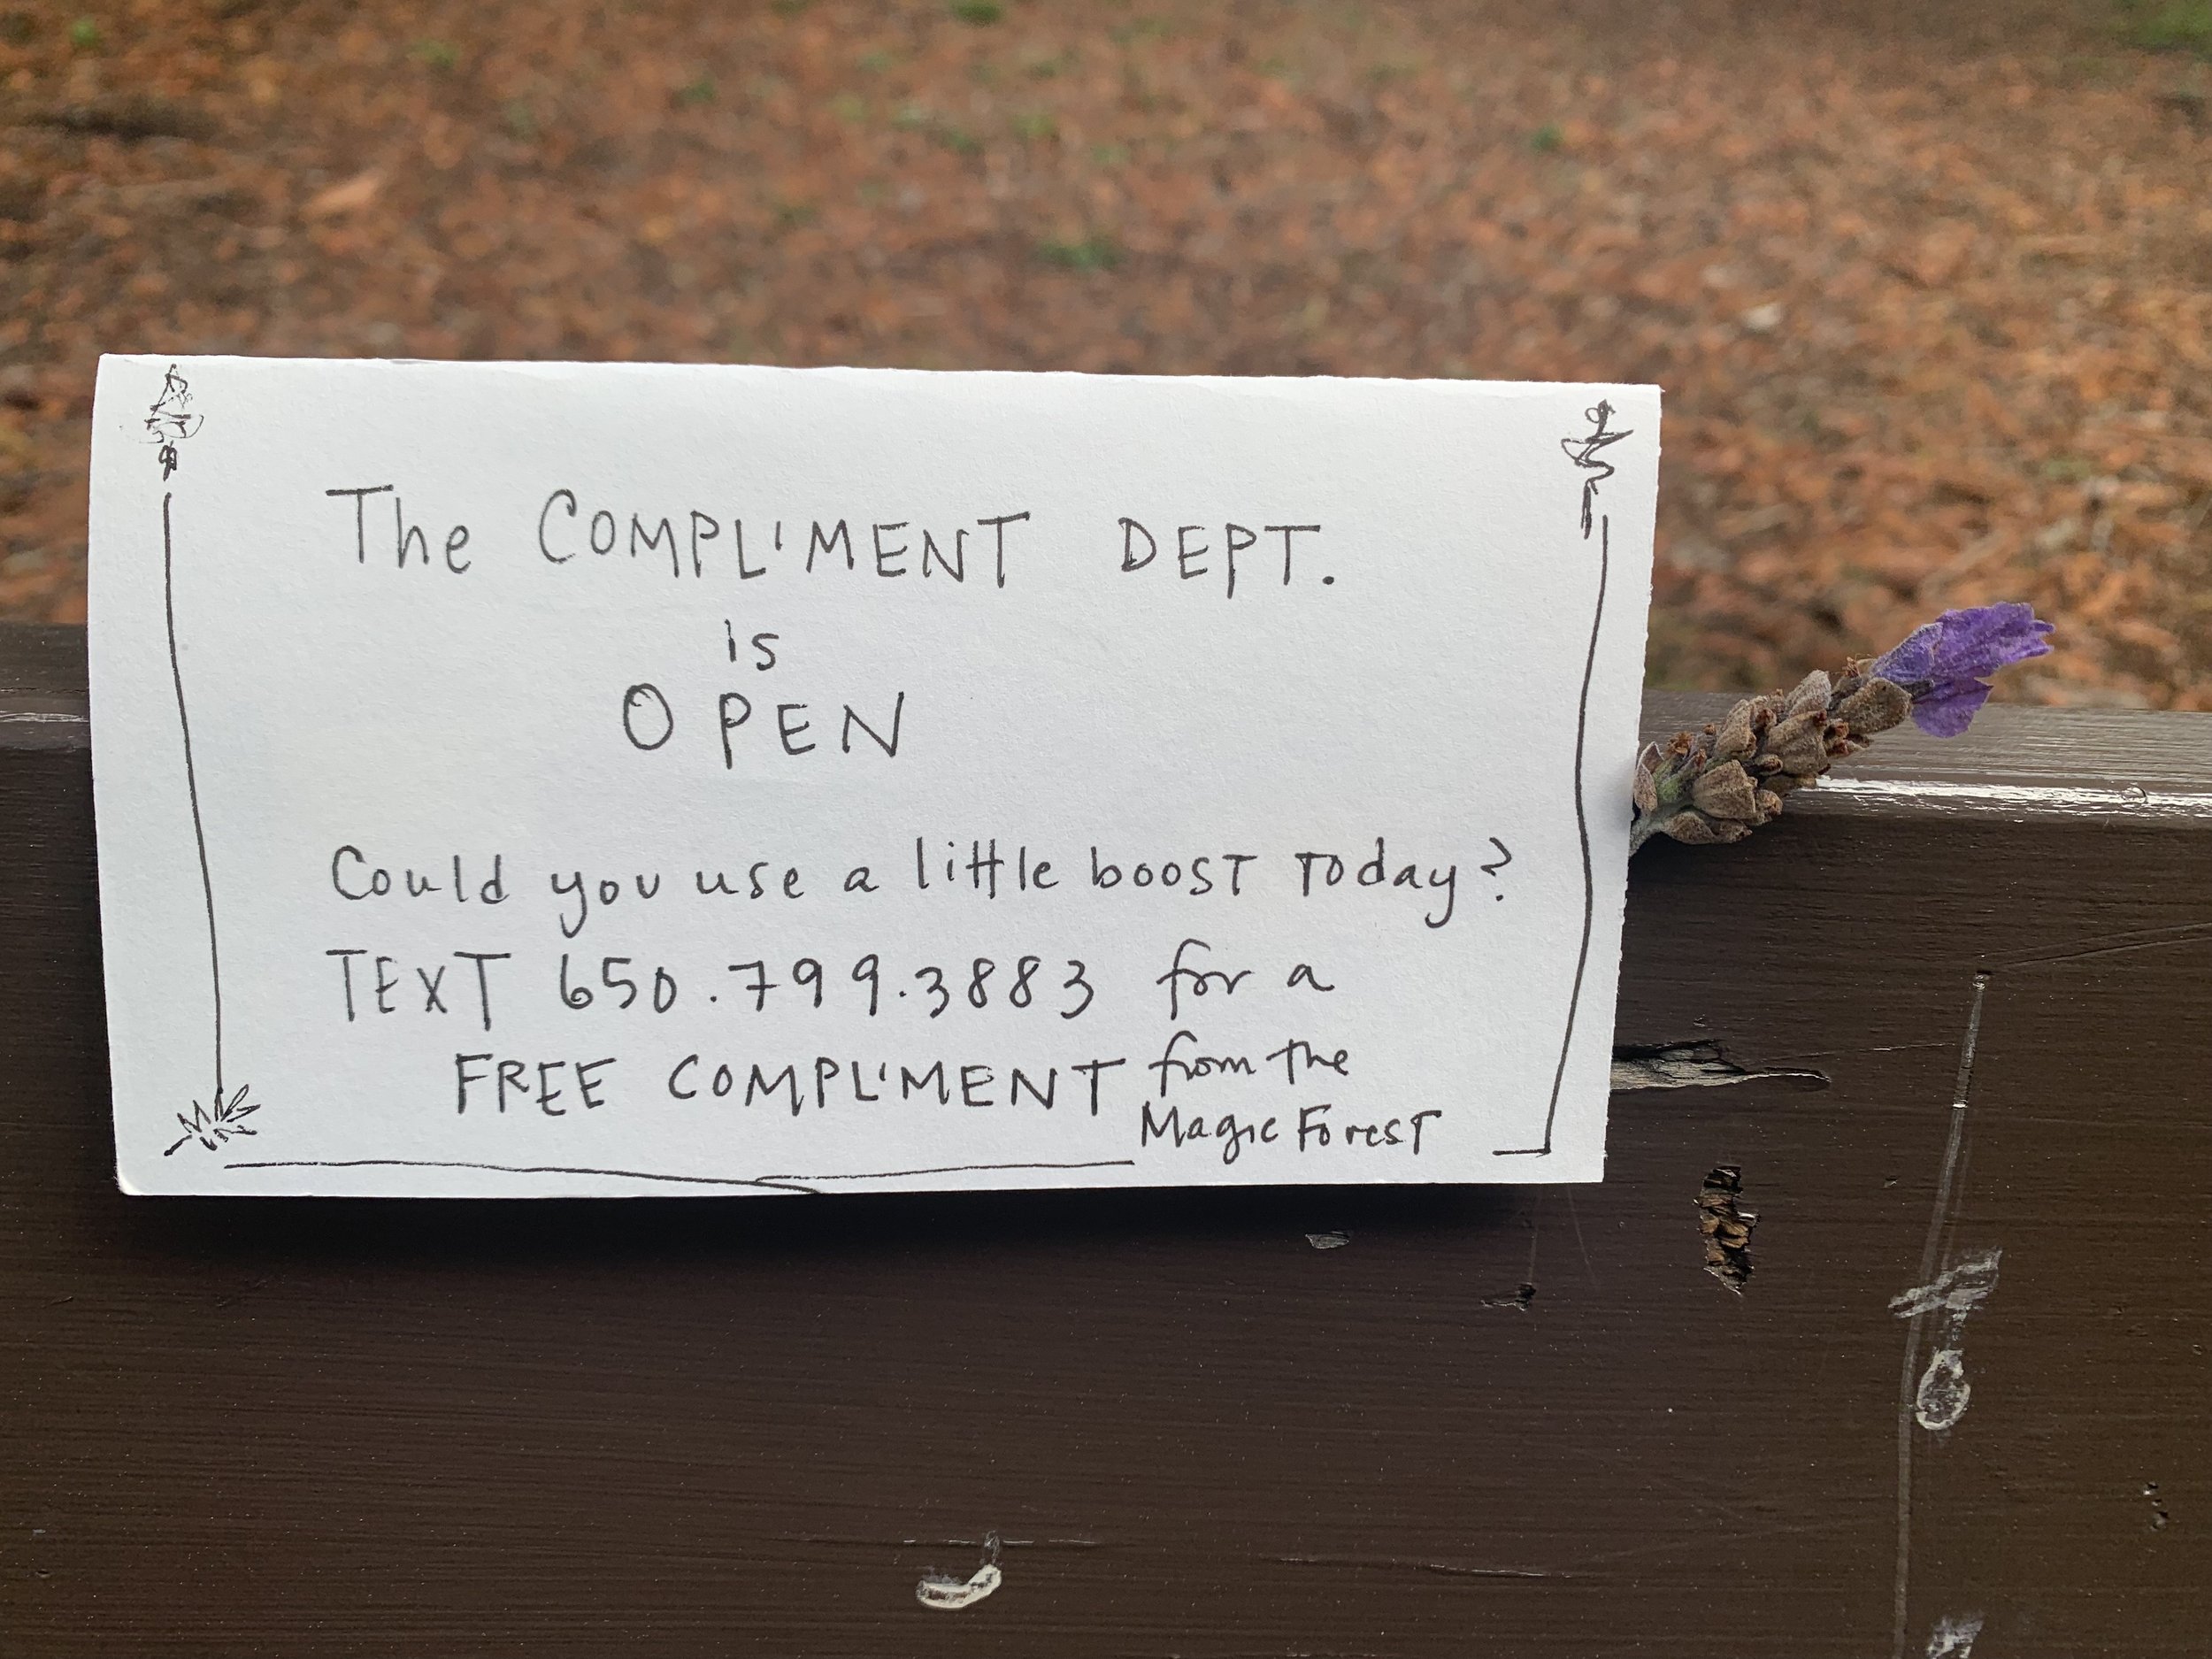 The COMPLIMENT DEPT.
is
OPEN
Could you use a little boost today?
TEXT 650.799.3883 for a
FREE COMPLIMENT from the
Magic Forest